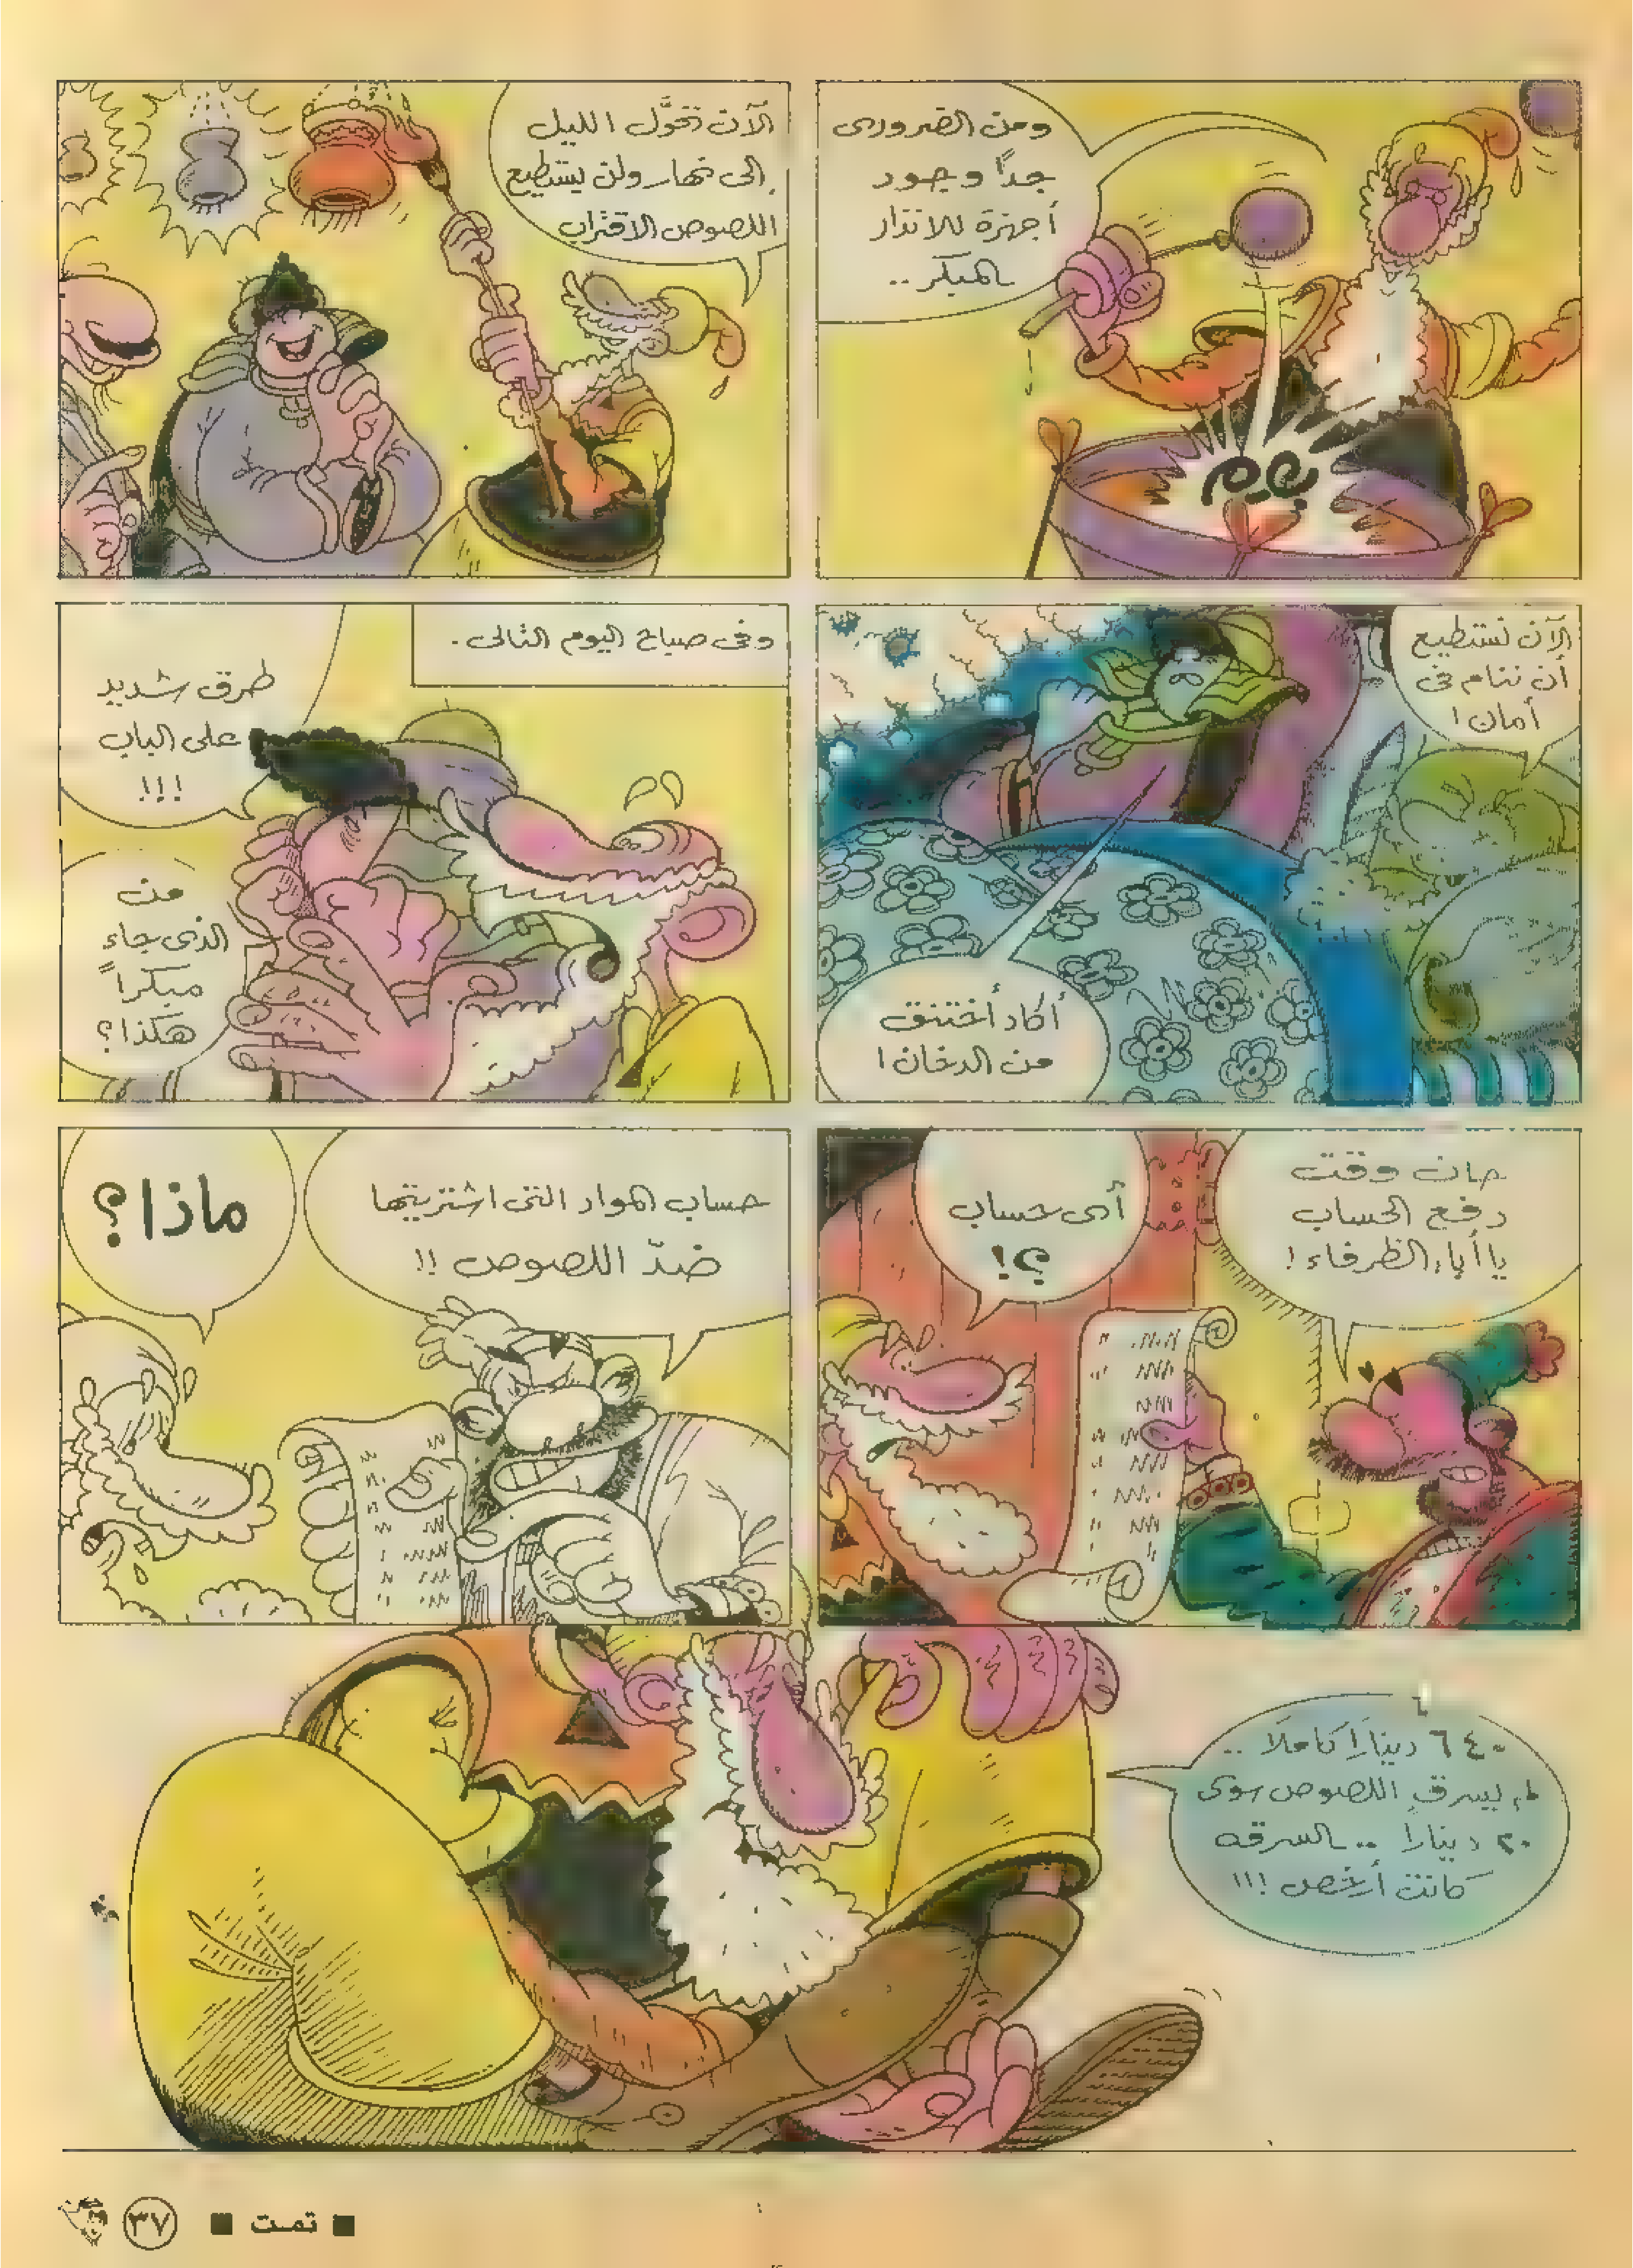 ومن الضرورى
جداً وجود
أجهزة للانذار
المبكر ..
بوم
الآن تحَّول الليل
إلى نهار ولن يستطيع
اللصوص الاقتراب
الآن نستطيع
أن ننام فى
أمان !
أكاد أختنق
من الدخان !
وفى صباح اليوم التالى .
طرق شديد
على الباب
!!!
من
الذى جاء
مبكراً
هكذا ؟
حان وقت
دفع الحساب
يا أبا الظرفاء !
أى حساب
؟!
حساب المواد التى اشتريتها
ضدّ اللصوص !!
ماذا ؟
٦٤٠ ديناراً كاملاً ..
لم يسرق اللصوص سوى
٢٠ ديناراً .. السرقه
كانت أرخص !!!
■ تمت ■
٣٧